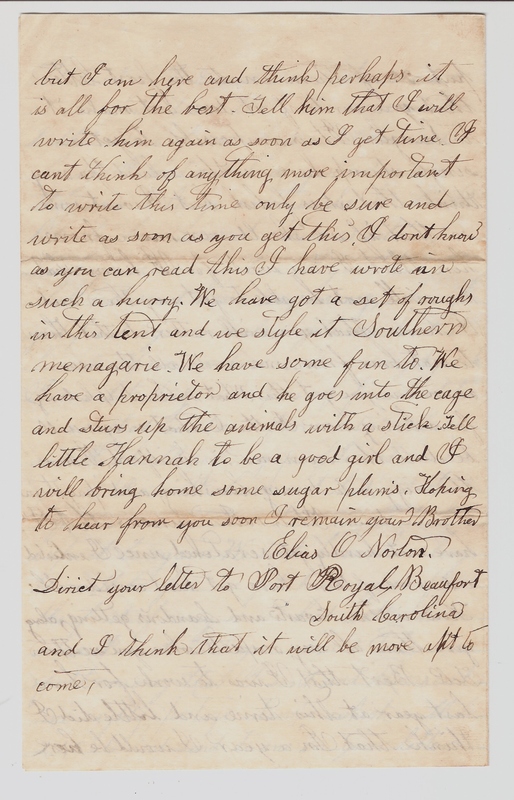 but I am here and think perhaps it
is all for the best. Tell him that I will
write him again as soon as I get time. I
cant think of anything more important
to write this time only be sure and
write as soon as you get this. I dont know
as you can read this I have wrote in
such a hurry. We have got a set of roughs
in this tent and we style it Southern
menagarie. We have some fun to. We
have a proprietor and he goes into the cage
and sturs up the animals with a stick. Tell
little Hannah to be a good girl and I
will bring home some sugar plums. Hoping
to hear from you soon I remain your Brother
Elias O Norton.
Dirict your letter to Port Royal, Beaufort
South Carolina
and I think that it will be more apt to
come,